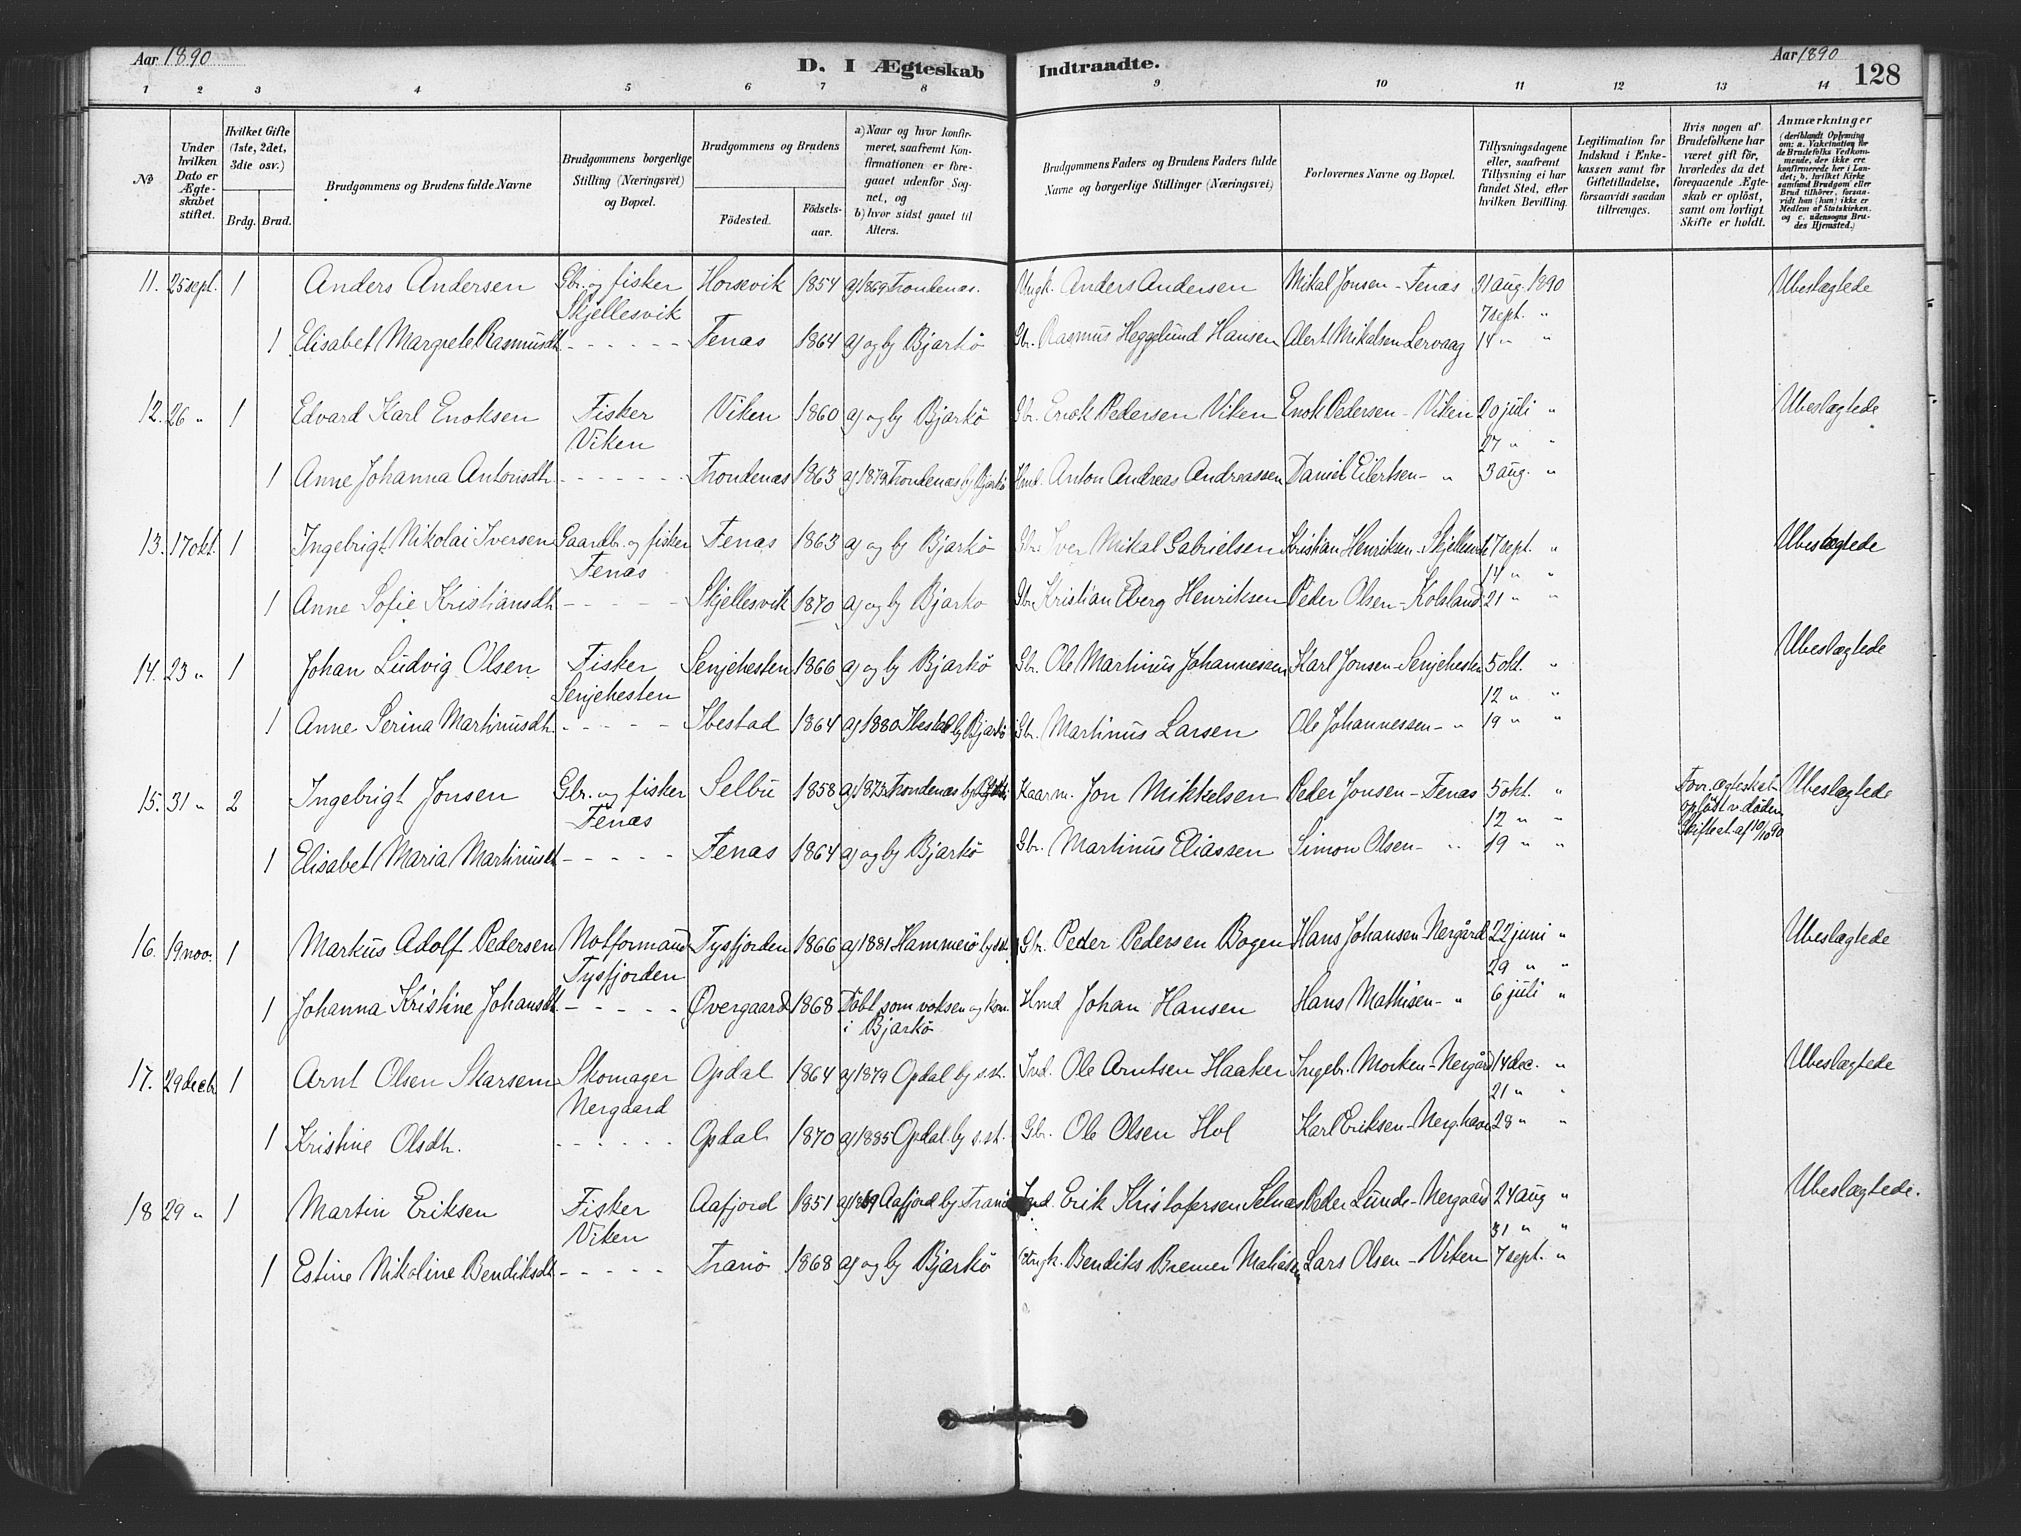 Aar 1890
D. I Ægteskab Indtraadte.
Aar 1890
128
1 2 3 4 5 6 7 8 9 10 11 12 13 14
No
Under hvilken Dato er Ægteskabet stiftet.
Hvilket Gifte (1ste, 2det, 3die osv.)
Brdg. Brud.
Brudgommens og Brudens fulde Navne
Brudgommens borgerlige Stilling (Næringsvei) og Bopæl.
Brudgommens og Brudens
Födested.
Födselsaar.
a) Naar og hvor konfirmeret, saafremt Konfirmationen er foregaaet udenfor Sognet, og
b) hvor sidst gaaet til Alters.
Brudgommens Faders og Brudens Faders fulde Navne og borgerlige Stillinger (Næringsvei)
Forlovernes Navne og Bopæl.
Tillysningsdagene eller, saafremt Tillysning ei har fundet Sted, efter hvilken Bevilling.
Legitimation for Indskud i Enkekassen samt for Giftetilladelse, forsaavidt saadan tiltrænges.
Hvis nogen af Brudefolkene har været gift för, hvorledes da det foregaaende Ægteskab er oplöst, samt om lovligt Skifte er holdt.
Anmærkninger
(deriblandt Oplysning om: a. Vakcination for de Brudefolks Vedkommende, der ikke ere konfirmerede her i Landet; b. hvilket Kirkesamfund Brudgom eller Brud tilhörer, forsaavidt han (hun) ikke er Medlem af Statskirken. og c. udensogns Brudes Hjemsted.)
11. 25 sept. 1 Anders Andersen Gbr. og fisker Horsevik 1854 a) 1869 Trondenæs. Ungk. Anders Andersen Mikal Jonsen - Fenæs 31 aug. 1890 Ubeslægtede
Skjellesvik 7 sept. "
1 Elisabet Margrete Rasmusdt. - - - - - - Fenæs 1864 a) og b) Bjarkö Gbr. Rasmus Hegglund Hansen Alert Mikalsen Lervaag 14 " "
12. 26 " 1 Edvard Karl Enoksen Fisker Viken 1860 a) og b) Bjarkö Gbr. Enok Pedersen Viken Enok Pedersen - Viken 20 juli " Ubeslægtede
Viken 27 " "
1 Anne Johanna Antonsdt. - - - - - - - Trondenæs 1863 a) 1879 Trondenæs b) Bjarkö Hmd. Anton Andreas Andreassen Daniel Eilertsen - " 3 aug. "
13. 17 okt. 1 Ingebrigt Nikolai Iversen Gaardbr. og fisker Fenæs 1863 a) og b) Bjarkö Gbr. Iver Mikal Gabrielsen Kristian Henriksen - Skjellesvik 7 sept. " Ubeslægtede
Fenæs 14 " "
1 Anne Sofie Kristiansdt. - - - - - - Skjellesvik 1870 a) og b) Bjarkö Gbr. Kristian Eberg Henriksen Peder Olsen - Kolsland 21 " "
14. 23 " 1 Johan Ludvig Olsen Fisker Senjehesten 1866 a) og b) Bjarkö Gbr. Ole Martinus Johannessen Karl Jonsen - Senjehesten 5 okt. " Ubeslægtede
Senjehesten 12 " "
1 Anne Serina Martinusdt. - - - - - - Ibestad 1864 a) 1880 Ibestad b) Bjarkö Gbr. Martinus Larsen Ole Johannessen - " 19 " "
15. 31 " 2 Ingebrigt Jonsen Gbr. og fisker Selbu 1858 a) 1873 Trondenæs b) Bjarkö Kaarm. Jon Mikkelsen Peder Jonsen - Fenæs 5 okt. " Forr. ægteskab opløst v. døden Skifteat. af 10/10 90 Ubeslægtede
Fenæs 12 " "
1 Elisabet Maria Martinusdt. - - - - - - Fenæs 1864 a) og b) Bjarkö Gbr. Martinus Eliassen Simon Olsen - " 19 " "
16. 19 nov. 1 Markus Adolf Pedersen Notformand Tysfjorden 1866 a) 1881 Hammerö b) s.st. Gbr. Peder Pedersen Bogen Hans Johansen - Nergård 22 juni " Ubeslægtede
Tysfjorden 29 " "
1 Johanna Kristine Johansdt. - - - - - Øvergaard 1868 Döbt som voksen og kon. i Bjarkö Hmd Johan Hansen Hans Mathisen - " 6 juli "
17. 29 decb. 1 Arnt Olsen Skarsem Skomager Opdal 1864 a) 1879 Opdal b) s.st. Ind. Ole Arntsen Haaker Ingebr. Morken - Nergård 14 dec. " Ubeslægtede
Nergaard 21 " "
1 Kristine Olsdt. - - - - - - Opdal 1870 a) 1885 Opdal b) s.st. Gbr. Ole Olsen Hol Karl Eriksen - Nerg.havn 28 " "
18 29 " 1 Martin Eriksen Fisker Aafjord 1851 a) 1869 Aafjord b) Tranö Ind. Erik Kristofersen Selnæs Peder Lunde - Nergaard 24 aug " Ubeslægtede.
Viken 31 " "
1 Estine Nikoline Bendiksdt. - - - - - Tranö 1868 a) og b) Bjarkö Ungk. Bendiks Bremer Matiesen Lars Olsen - Viken 7 sept. "